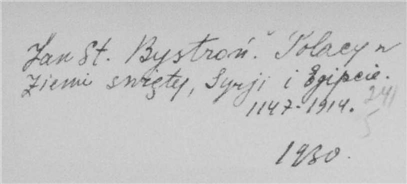 Jan St. Bystroń: Polacy w
Ziemi świętej, Syrji i Egipcie.
1147-1914.
241
5
1930.